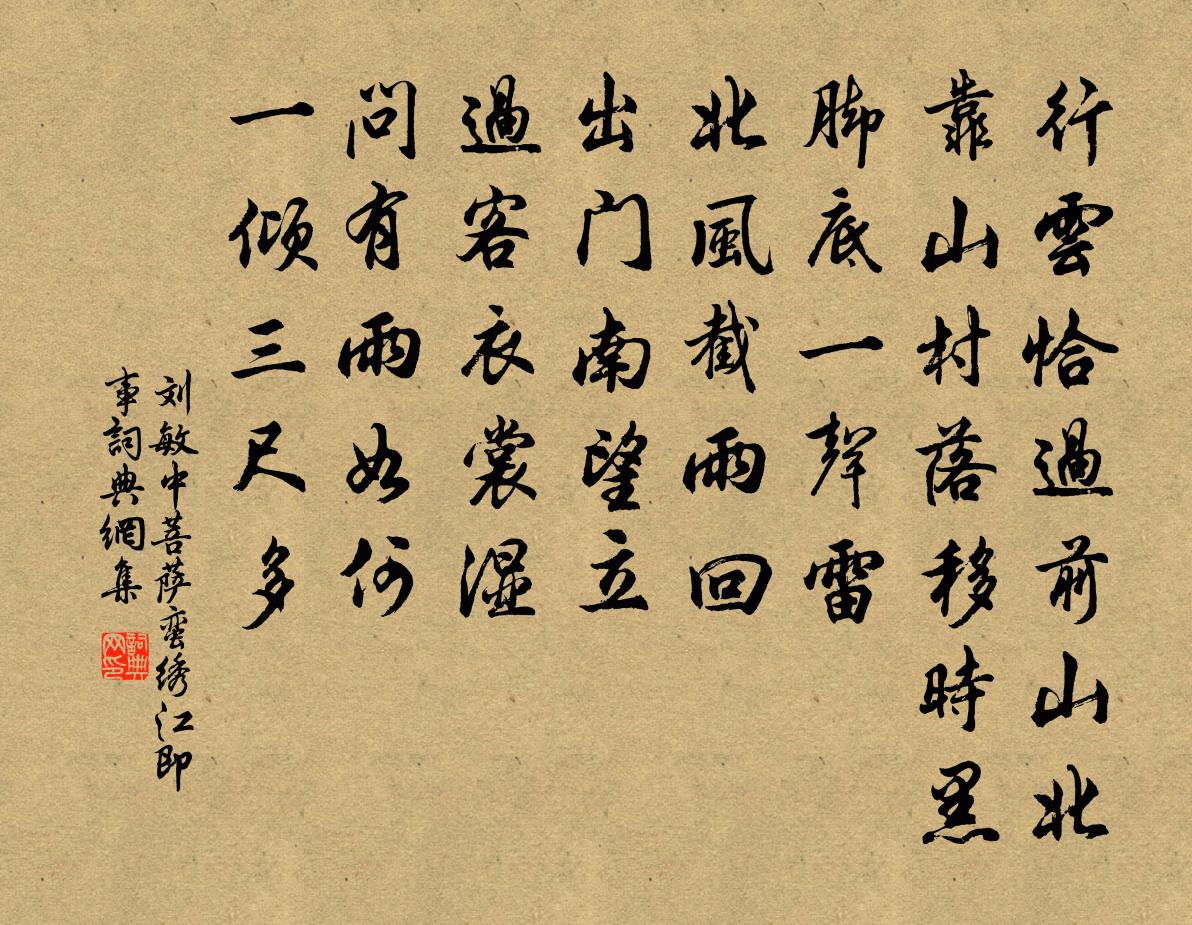 行雲恰過前山北
靠山村落移時黑
脚底一聲雷
北風截雨回
出门南望立
過客衣裳湿
問有雨如何
一倾三尺多
刘敏中菩萨蛮绣江即
事詞典網集
詞典网印